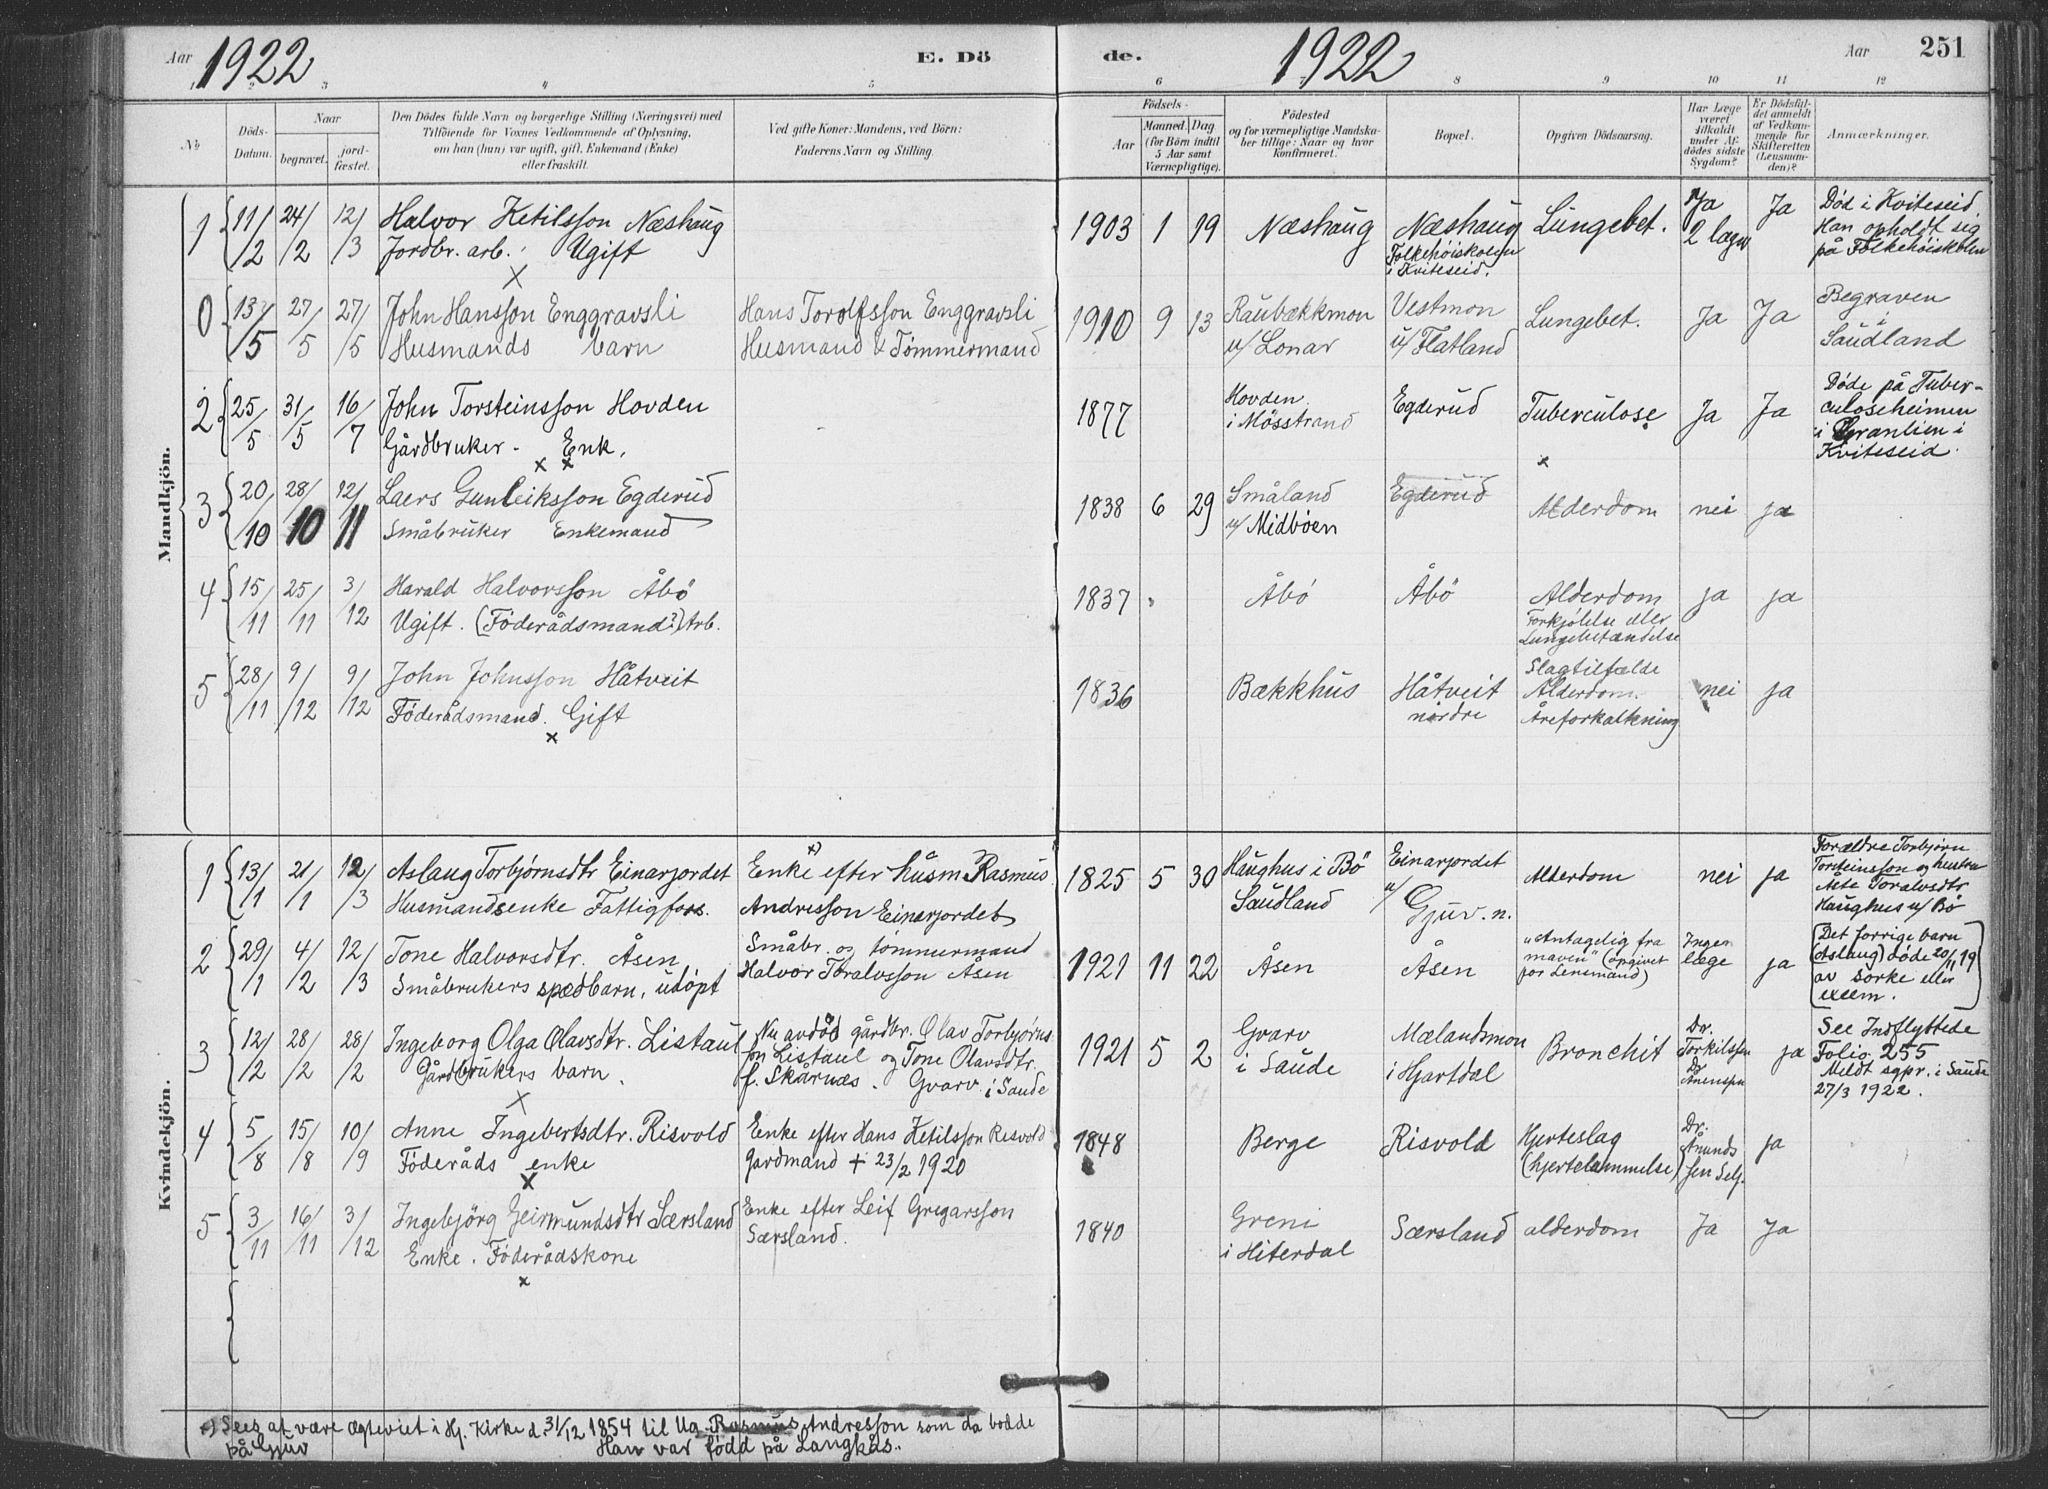 Aar 1922 E. Döde. 1922 Aar 251
1 2 3 4 5 6 7 8 9 10 11 12
No
Döds-Datum.
Naar
begravet.
jord-fæstet.
Den Dödes fulde Navn og borgerlige Stilling (Næringsvei) med
Tilföiende for Voxnes Vedkommende af Oplysning,
om han (hun) var ugift, gift, Enkemand (Enke)
eller fraskilt.
Ved gifte Koner: Mandens, ved Börn:
Faderens Navn og Stilling.
Födsels-
Aar
Maaned. Dag
(for Börn indtil
5 Aar samt
Værnepligtige).
Födested
og for værnepligtige Mandska-
ber tillige: Naar og hvor
konfirmeret.
Bopæl.
Opgiven Dödsaarsag.
Har Læge
været
tilkaldt
under Af-
dödes sidste
Sygdom?
Er Dödsfal-
det anmeldt
af Vedkom-
mende for
Skifteretten
(Lensman-
den)?
Anmærkninger.
Mandkjön.
1 11/2 24/2 12/3 Halvor Ketilsson Næshaug
Jordbr. arb. Ugift
x
1903 1 19 Næshaug Næshaug
Folkehöiskolen
i Kviteseid.
Lungebet. Ja
2 læger
Ja Död i Kviteseid
Han opholdt sig
på Folkehöiskolen
0 13/5 27/5 27/5 John Hansson Enggravsli
Husmands barn
Hans Torolfsson Enggravsli
Husmand & Tömmermand
1910 9 13 Raubækkmon
u/ Lonar
Vestmon
u/ Flatland
Lungebet. Ja Ja Begraven
i
Saudland
2 25/5 31/5 16/7 John Torsteinsson Hovden
Gårdbruker - Enk.
x x
1877 Hovden
i Mösstrand
Egderud Tuberculose Ja Ja Döde på Tuber-
culoseheimen
i Granlien i
Kviteseid.
x
3 20/10 28/10 12/11 Laers Gunleiksson Egderud
Småbruker Enkemand
1838 6 29 Småland
u/ Midböen
Egderud Alderdom nei ja
4 15/11 25/11 3/12 Harald Halvorsson Åbö
Ugift. (Föderådsmand?) Arb.
1837 Åbö Åbö Alderdom
Forkjölelse eller
Lungebetændelse
ja ja
5 28/11 9/12 9/12 John Johnsson Håtveit
Föderådsmand. Gift
x
1836 Bækkhus Håtveit
nordre
Slagtilfælde
Alderdom.
Åreforkalkning
nei ja
Kvindekjön.
1 13/1 21/1 12/3 Aslaug Torbjørnsdtr Einarjordet
Husmandsenke Fattigfors.
x)
Enke efter husm. Rasmus
Andresson Einarjordet
1825 5 30 Haughus i Bö
Saudland
Einarjordet
u/
Gjuv. n.
Alderdom nei ja Forældre Torbjörn
Torsteinsson og hustru
Åste Toralvsdtr
Haughus u/ Bö
2 29/1 4/2 12/3 Tone Halvorsdtr. Åsen
Småbrukers spædbarn, udöpt
Småbr. og tömmermand
Halvor Toralvsson Åsen
1921 11 22 Åsen Åsen "Antagelig fra
maven" (opgivet
for Lensmand)
Ingen
læge
ja (Det forrige barn
(Aslaug) döde 20/11 19
av sorke eller
excem.)
3 12/2 28/2 28/2 Ingeborg Olga Olavsdtr. Listaul
Gårdbrukers barn.
x
Nu avdöd gårdbr. Olav Torbjörns-
son Listaul og Tone Olavsdtr.
f. Skårnæs. Gvarv i Saude
1921 5 2 Gvarv
i Saude
Mælandsmon
i Hjartdal
Bronchit Dr.
Torkilssen
Dr.
ja See Indflyttede
Folio 255
Meldt sgpr. i Saude
27/3 1922.
4 5/8 15/8 10/9 Anne Ingebertsdtr. Risvold
Föderåds enke
x
Enke efter Hans Ketilsson Risvold
Gardmand + 23/2 1920
1848 Berge Risvold Hjerteslag
(hjertelammelse)
Dr.
Åmunds
sen Selj.
ja
5 3/11 16/11 3/12 Ingebjörg Geirmundsdtr Særsland
Enke. Föderådskone
x
Enke efter Leif Gregarsson
Særsland.
1840 Greni
i Hiterdal
Særsland alderdom Ja Ja
x) Sees at være ægteviet i Hj. Kirke d. 31/12 1854 til Ug. Rasmus Andresson som da bodde
på Gjuv Han var född på Langkås.